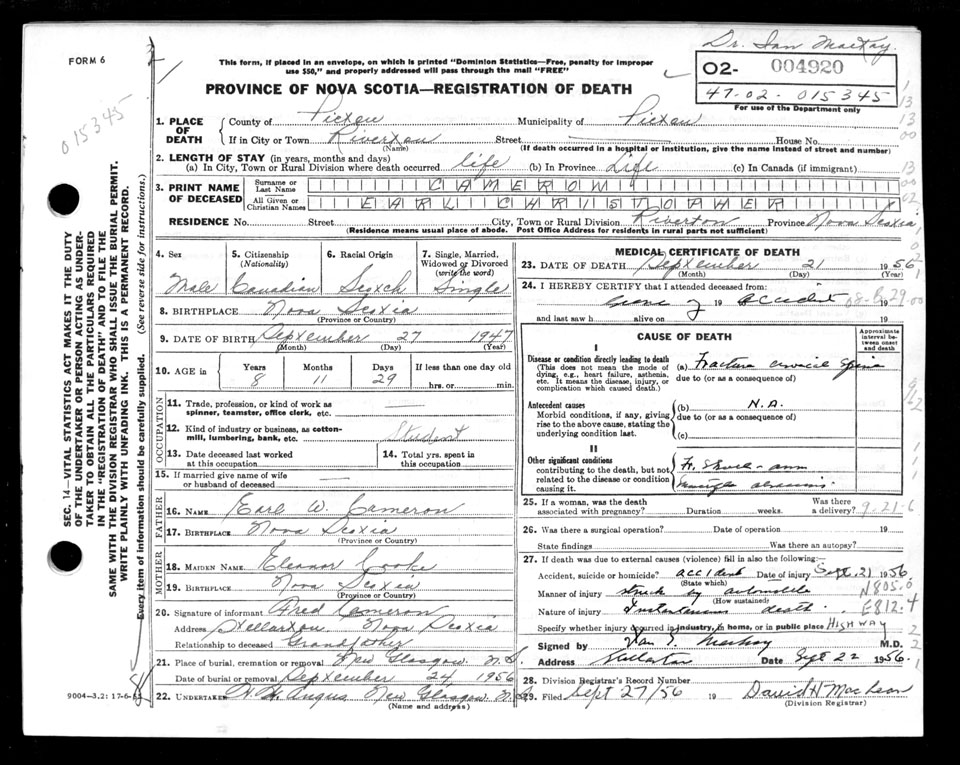 Dr. Ian MacKay.
FORM 6
This form, if placed in an envelope, on which is printed "Dominion Statistics—Free, penalty for improper
use $50," and properly addressed will pass through the mail "FREE"
O2- 004920
47-02-015345
For use of the Department only
PROVINCE OF NOVA SCOTIA—REGISTRATION OF DEATH
015345
1. PLACE OF DEATH
County of Pictou Municipality of Pictou
If in City or Town Riverton Street House No.
(Name) (If death occurred in a hospital or institution, give the name instead of street and number)
2. LENGTH OF STAY (in years, months and days)
(a) In City, Town or Rural Division where death occurred life (b) In Province Life (c) In Canada (if immigrant)
3. PRINT NAME OF DECEASED
Surname or Last Name CAMERON
All Given or Christian Names EARL CHRISTOPHER
RESIDENCE No. Street City, Town or Rural Division Riverton Province Nova Scotia
(Residence means usual place of abode. Post Office Address for residents in rural parts not sufficient)
4. Sex Male
5. Citizenship (Nationality) Canadian
6. Racial Origin Scotch
7. Single, Married, Widowed or Divorced (write the word) Single
8. BIRTHPLACE Nova Scotia
(Province or Country)
9. DATE OF BIRTH September 27 1947
(Month) (Day) (Year)
10. AGE in Years 8 Months 11 Days 29 If less than one day old hrs. or min.
OCCUPATION
11. Trade, profession, or kind of work as spinner, teamster, office clerk, etc.
12. Kind of industry or business, as cotton-mill, lumbering, bank, etc. Student
13. Date deceased last worked at this occupation
14. Total yrs. spent in this occupation
15. If married give name of wife or husband of deceased
FATHER
16. NAME Earl W. Cameron
17. BIRTHPLACE Nova Scotia
(Province or Country)
MOTHER
18. MAIDEN NAME Eleanor Cooke
19. BIRTHPLACE Nova Scotia
(Province or Country)
20. Signature of informant Fred Cameron
Address Stellarton Nova Scotia
Relationship to deceased Grandfather
21. Place of burial, cremation or removal New Glasgow N.S.
Date of burial or removal September 24 1956
22. UNDERTAKER H. H. Angus New Glasgow N.S.
(Name and address)
9004—3.2: 17-6-
SEC. 14—VITAL STATISTICS ACT MAKES IT THE DUTY
OF THE UNDERTAKER OR PERSON ACTING AS UNDER-
TAKER TO OBTAIN ALL THE PARTICULARS REQUIRED
IN THE "REGISTRATION OF DEATH" AND TO FILE THE
SAME WITH THE DIVISION REGISTRAR WHO SHALL ISSUE THE BURIAL PERMIT.
WRITE PLAINLY WITH UNFADING INK. THIS IS A PERMANENT RECORD.
Every item of information should be carefully supplied. (See reverse side for instructions.)
MEDICAL CERTIFICATE OF DEATH
23. DATE OF DEATH September 21 1956
(Month) (Day) (Year)
24. I HEREBY CERTIFY that I attended deceased from:
19 accident 19
and last saw h alive on 19
CAUSE OF DEATH
Approximate interval between onset and death
I
Disease or condition directly leading to death
(This does not mean the mode of dying, e.g., heart failure, asthenia, etc. It means the disease, injury, or complication which caused death.)
(a) Fracture cervical Spine
due to (or as a consequence of)
Antecedent causes
Morbid conditions, if any, giving rise to the above cause, stating the underlying condition last.
(b) N.A.
due to (or as a consequence of)
(c)
II
Other significant conditions contributing to the death, but not related to the disease or condition causing it.
Fr. Skull - arm
Multiple abrasions
25. If a woman, was the death associated with pregnancy? Duration weeks. Was there a delivery? 9-21-6
26. Was there a surgical operation? Date of operation 19
State findings Was there an autopsy?
27. If death was due to external causes (violence) fill in also the following:—
Accident, suicide or homicide? accident Date of injury Sept. 21 1956
(State which)
Manner of injury struck by automobile N805.0
(How sustained)
Nature of injury Instantaneous death. E812.4
Specify whether injury occurred in industry, in home, or in public place HIGHWAY
Signed by Ian Mackay M.D.
Address Stellarton Date Sept 22 1956
28. Division Registrar's Record Number
29. Filed Sept 27/56 19 David H MacLean
(Division Registrar)